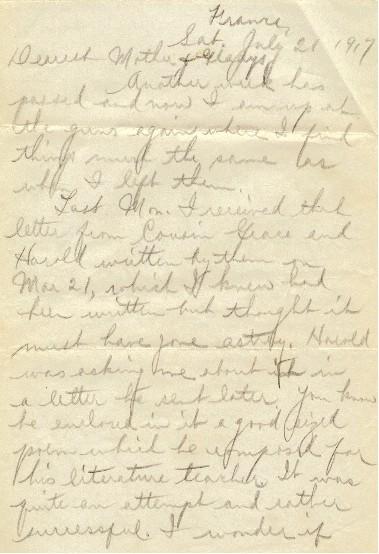 France,
Sat. July 21 1917
Dearest Mother & Gladys,
Another week has
passed and now I am up at
the guns again where I find
things much the same as
when I left them.
Last Mon. I received that
letter from Cousin Grace and
Harold written by them on
Mar 21, which I knew had
been written but thought it
must have gone astray. Harold
was asking me about it in
a letter he sent later. You know
he enclosed in it a good sized
poem which he composed for
his literature teacher. It was
quite an attempt and rather
successful. I wonder if